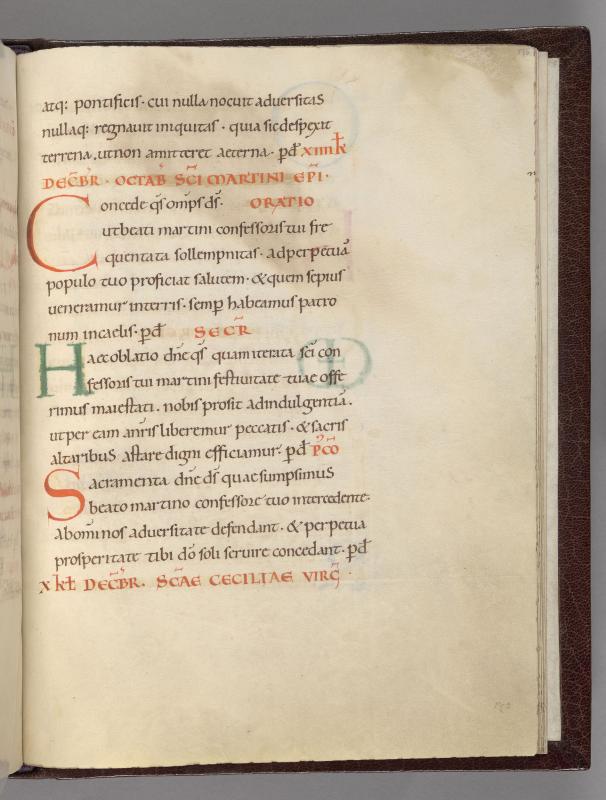 atq: pontificis· cui nulla nocuit adversitas
nullaq: regnavit iniquitas · quia sic despexit
terrena . ut non amitteret aeterna · p̄d̄ XIIII k̄
DEC̄BR̄ · OCTAB̄ SC̄I MARTINI EP̄I·
Concede q̄s om̄ps d̄s· ORATIO
ut beati martini confessoris tui fre
quentata sollempnitas · ad perpetuā
populo tuo proficiat salutem · & quem sepius
veneramur in terris · semp̄ habeamus patro
num in caelis · p̄d̄ SECR̄
Haec oblatio dn̄e q̄s quam iterata sc̄i con
fessoris tui martini festivitate tuae offe
rimus maiestati . nobis prosit ad indulgentiā .
ut per eam an̄ris liberemur peccatis · & sacris
altaribus astare digni efficiamur· p̄d̄ P̄CO
Sacramenta dn̄e d̄s quae sumpsimus
beato martino confessore tuo intercedente·
ab om̄i nos adversitate defendant · & perpetua
prosperitate tibi dō soli servire concedant · p̄d̄
X kł DEC̄BR̄ · SC̄AE CECILIAE VIRḠ ·